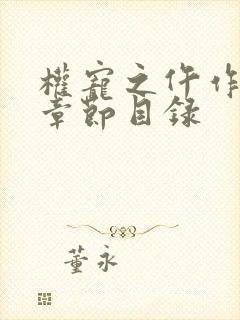 權寵之仵作
章節目録
董永